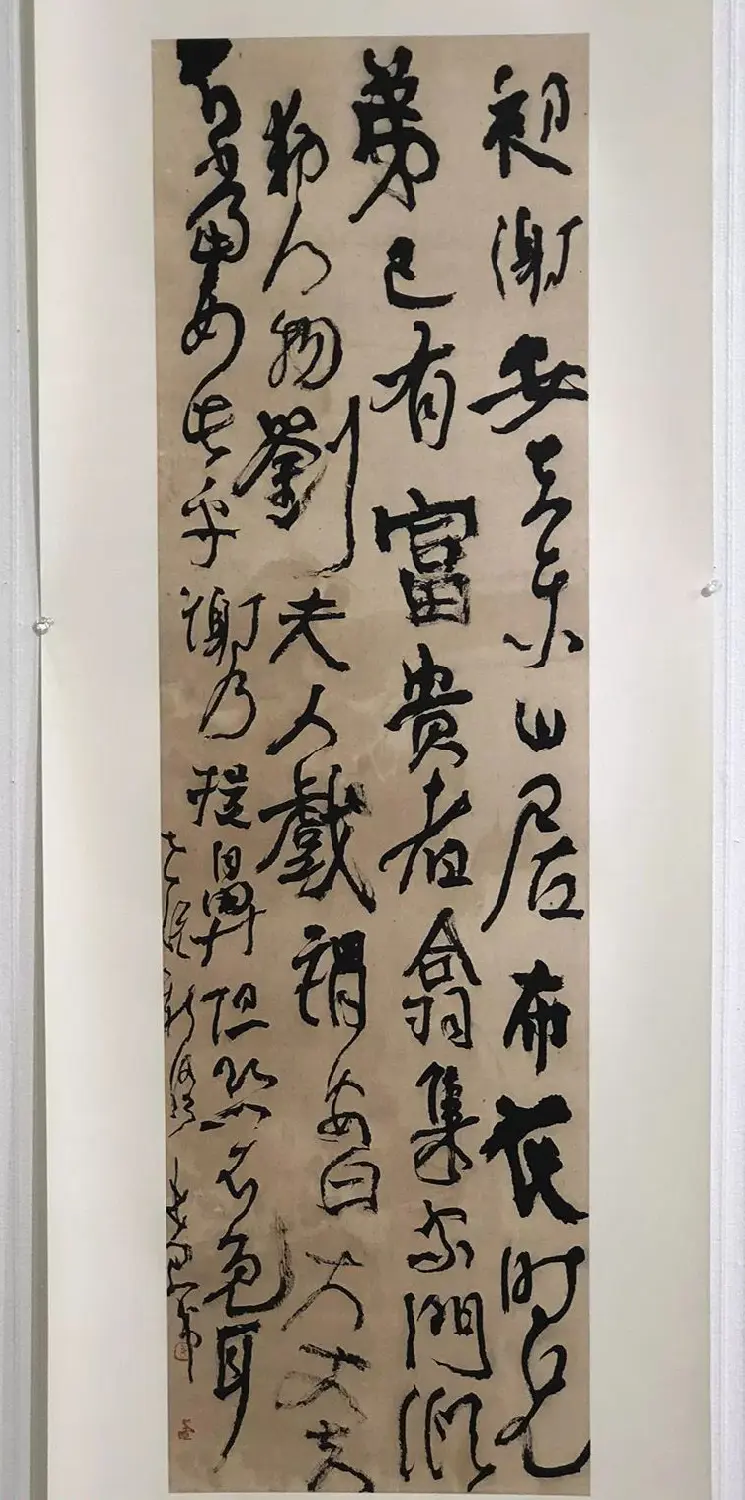 初謝安在東山居布衣時兄
弟已有富貴者翕集家門傾
動人物劉夫人戲謂安曰大丈夫
不當如此乎謝乃捉鼻但恐不免耳
世說新語